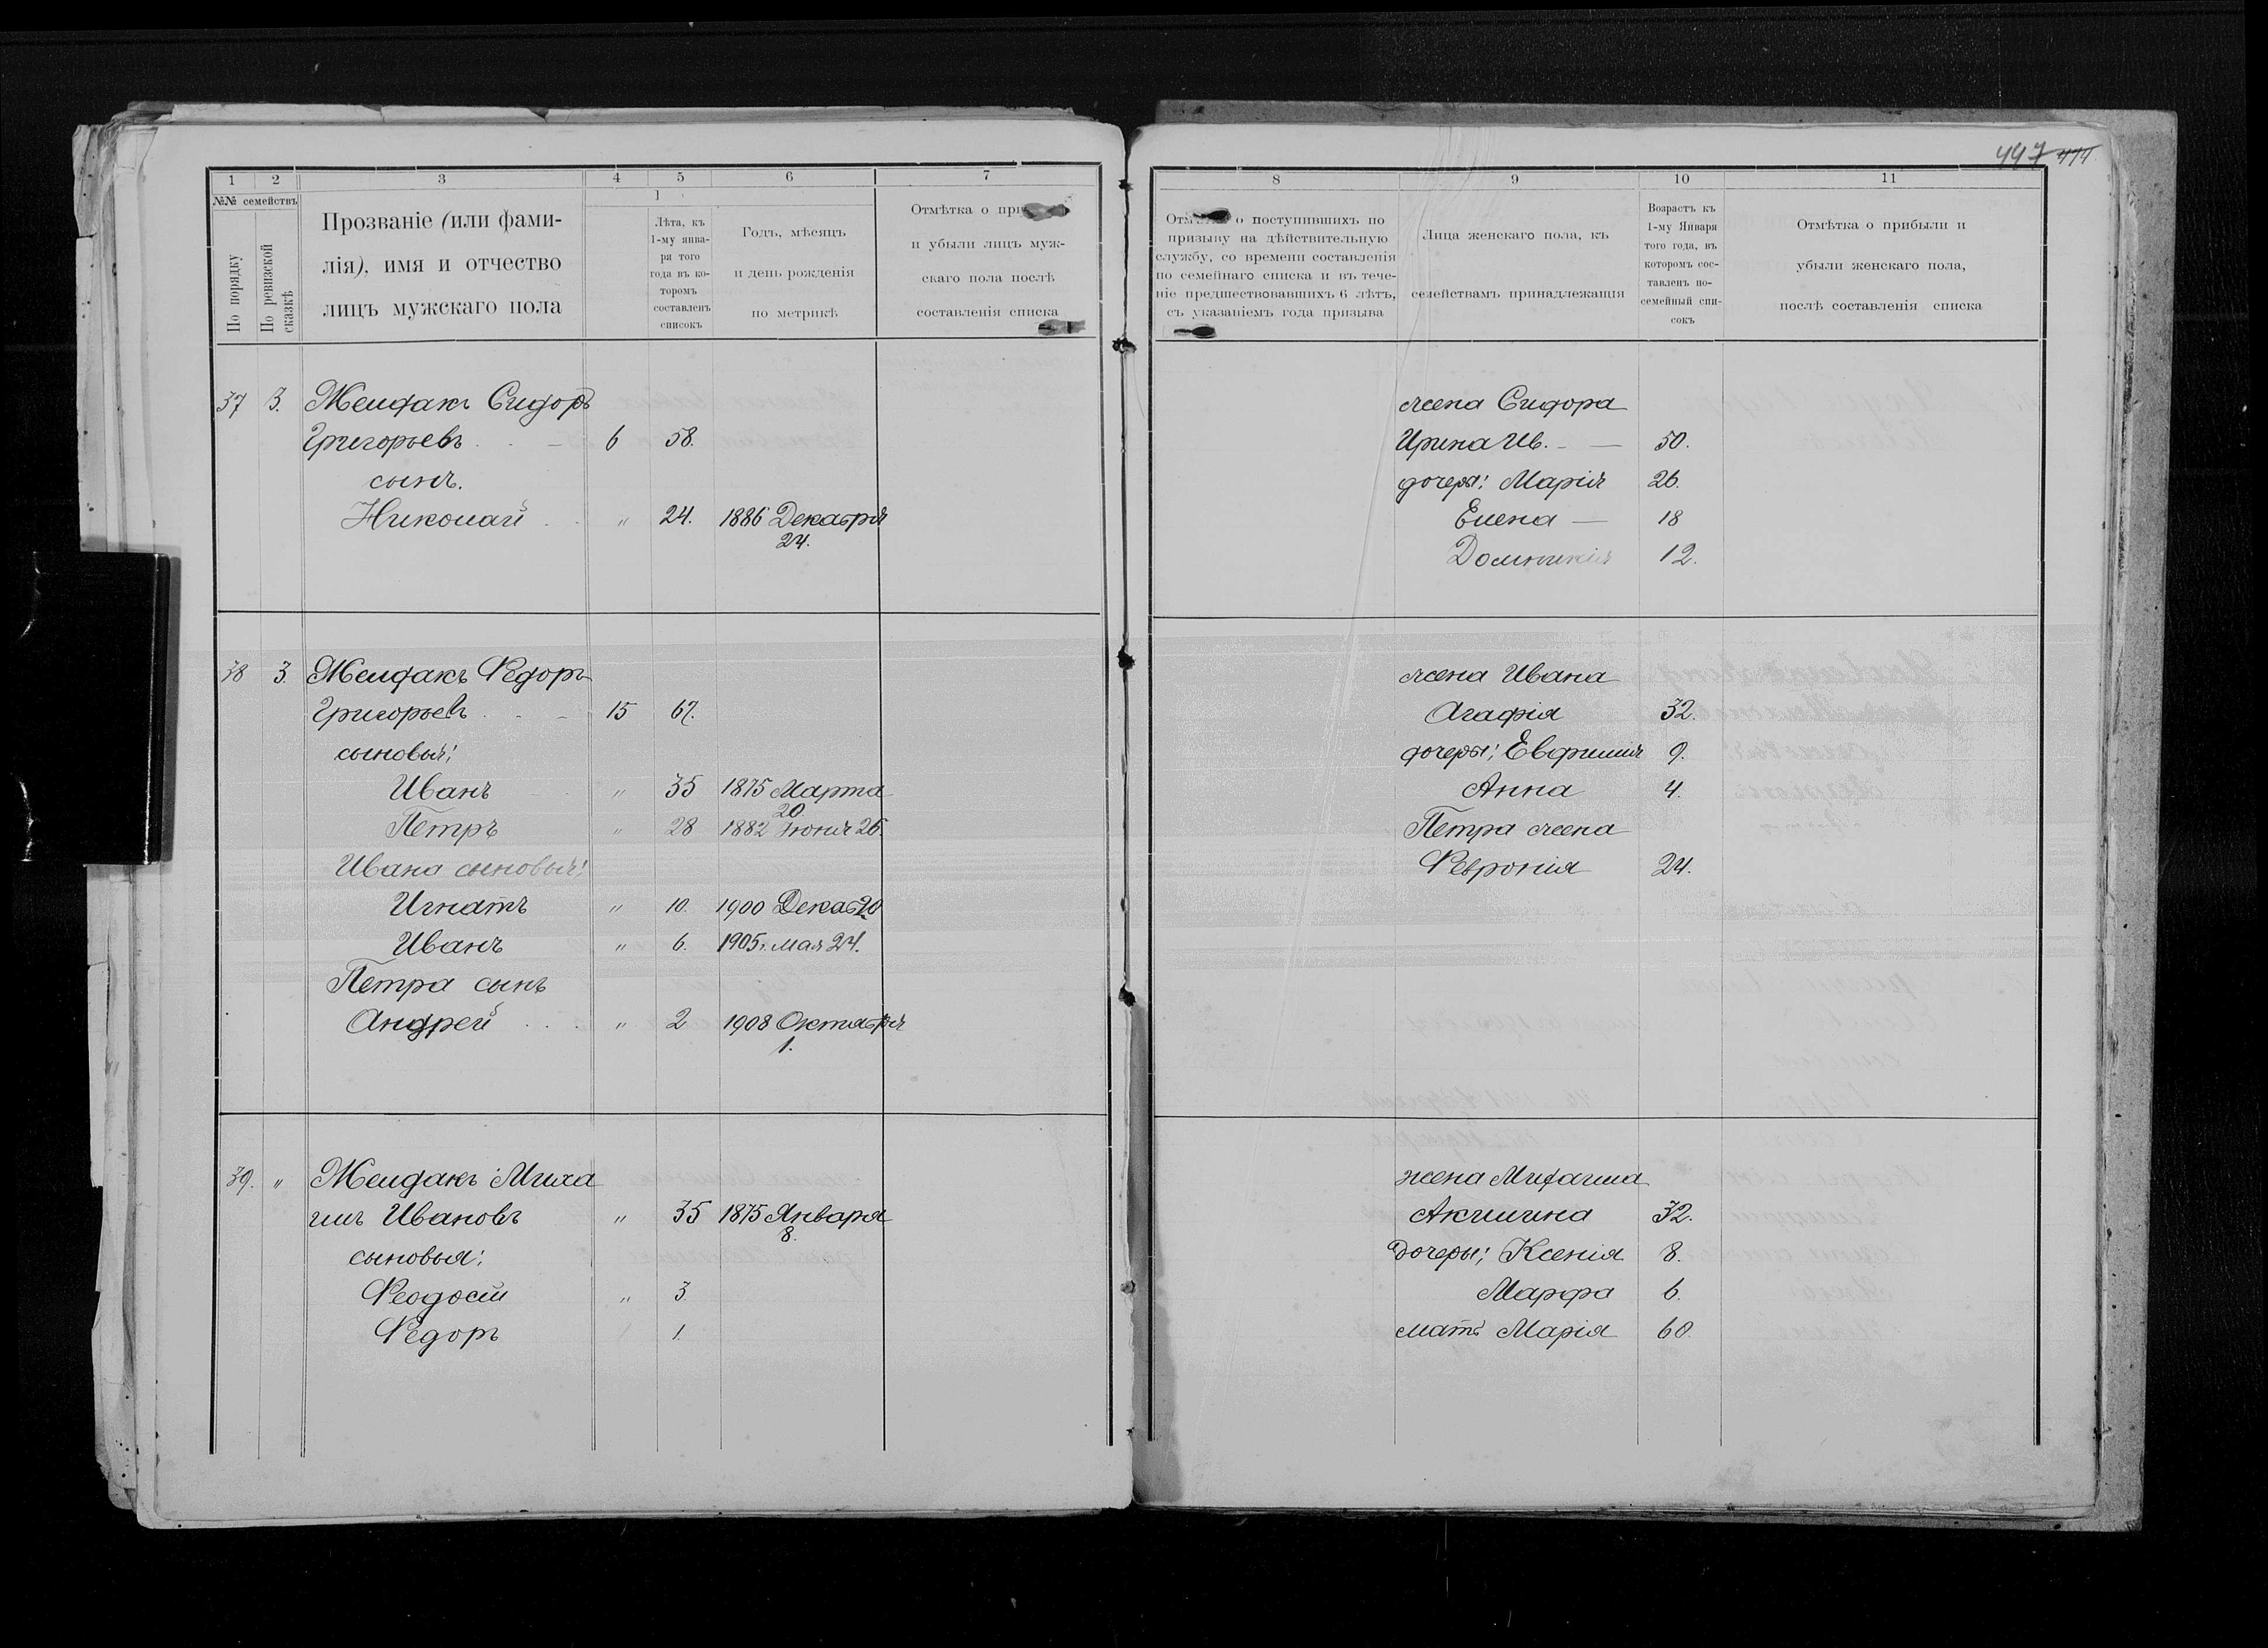 447 414
1 2 3 4 5 6 7
№№ семействъ
По порядку
По ревизской сказкѣ
Прозваніе (или фами-
лія), имя и отчество
лицъ мужскаго пола
Лѣта, къ
1-му янва-
ря того
года въ ко-
торомъ
составленъ
списокъ
Годъ, мѣсяцъ
и день рожденія
по метрикѣ
Отмѣтка о
и убыли лицъ муж-
скаго пола послѣ
составленія списка
37 3. Желдакъ Сидоръ
Григорьевъ 6 58.
сынъ.
Николай „ 24. 1886 Декабря
24.
38 3. Желдакъ Ѳедоръ
Григорьевъ 15 67.
сыновья:
Иванъ „ 35 1875 Марта
20.
Петръ „ 28 1882 Іюня 26.
Ивана сыновья:
Игнатъ „ 10. 1900 Декаб 20
Иванъ „ 6. 1905 г. мая 24.
Петра сынъ
Андрей „ 2 1908 Октября
1.
39. „ Желдакъ Миха
илъ Ивановъ „ 35 1875 Января
8.
сыновья:
Ѳеодосій „ 3
Ѳедоръ 1.
8 9 10 11
о поступившихъ по
призыву на дѣйствительную
службу, со времени составленія
по семейнаго списка и въ тече-
ніе предшествовавшихъ 6 лѣтъ,
съ указаніемъ года призыва
Лица женскаго пола, къ
семействамъ принадлежащія
Возрастъ къ
1-му Января
того года, въ
которомъ сос-
тавленъ по-
семейный спи-
сокъ
Отмѣтка о прибыли и
убыли женскаго пола,
послѣ составленія списка
жена Сидора
Ирина Ив. — 50.
дочери: Марія 26.
Елена — 18
Домникія 12.
жена Ивана
Агафія 32.
дочери: Евфимія 9.
Анна 4.
Петра жена
Ѳевронія 24.
жена Михаила
Акилина 32.
дочери: Ксенія 8.
Марфа 6.
мать Марія 60.